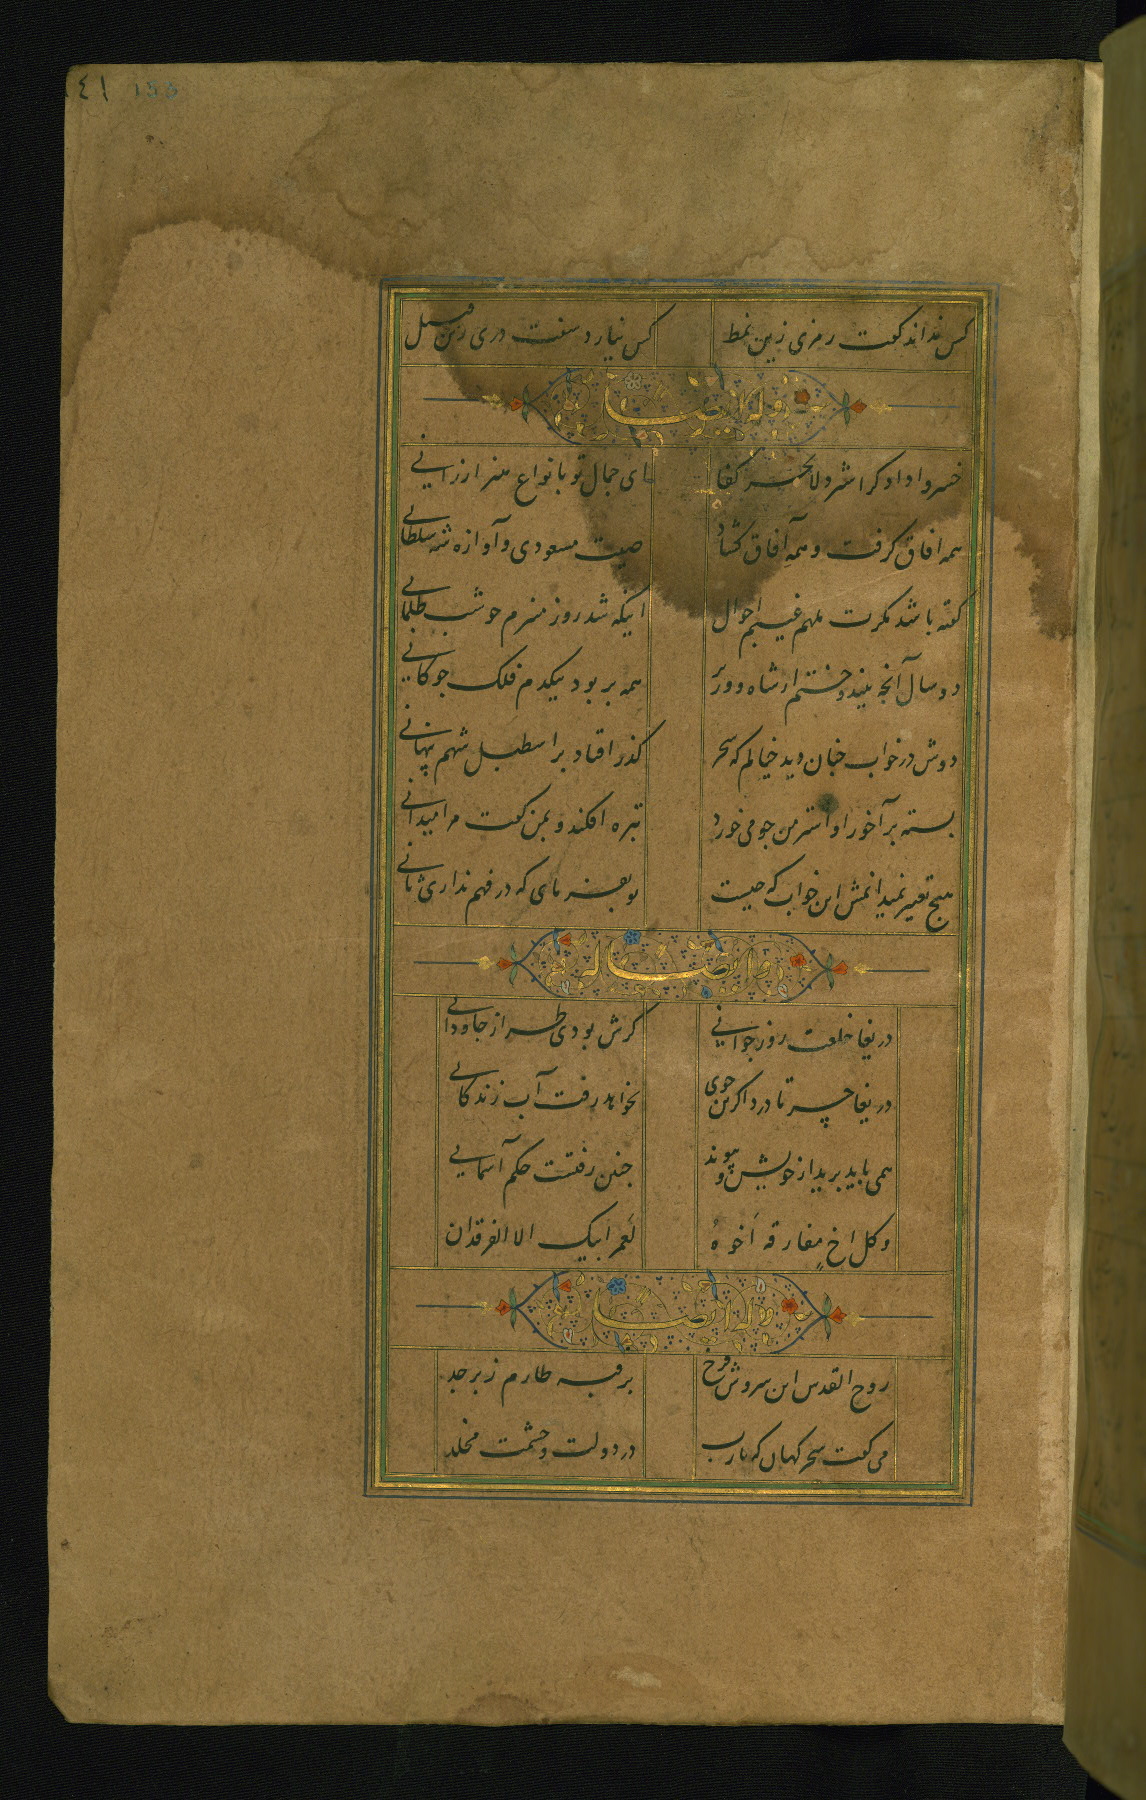 ١٤١ 155
کس نداند کفت رمزی زین نمط کس نیارد سفت دری زین قبیل
وله ایضا
خسروا دادکرا شردلا بحر کفا ای جمال تو بانواع هنر ارزانی
همه آفاق کرفت و همه آفاق کشاد صیت مسعودی و آوازه شه سلطانی
کفته باشد مکرت ملهم غیب احوالم اینکه شد روز منیرم چو شب ظلمانی
دو سال آنچه بیندوختم از شاه و وزیر همه بربود بیکدم فلک چوکانی
دوش در خواب چنان دید خیالم که سحر کذر افتاد بر اسطبل شهم پنهانی
بسته بر آخور او استر من جو می خورد تبره افکند و بمن کفت مرا میدانی
هیچ تعبیر نمیدانمش این خواب که چیست تو بفرمای که در فهم نداری ثانی
وایضا له
دریغا خلعت روز جوانی کرش بودی طراز جاودانی
دریغا حسرتا دردا کزین جوی بخواهد رفت آب زندکانی
همی باید برید از خویش و پیوند چنین رفتست حکم آسمانی
وکل اخ مفارقه اخوه لعمر ابیک الا الفرقدان
وله ایضا
روح القدس این سروش فرخ بر قبه طارم زبرجد
می کفت سحر کهان که یارب در دولت و حشمت مخلد